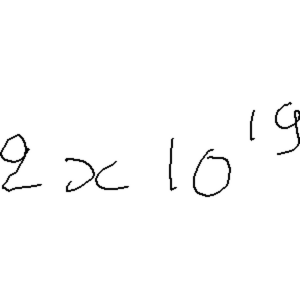 2 x 10¹⁹